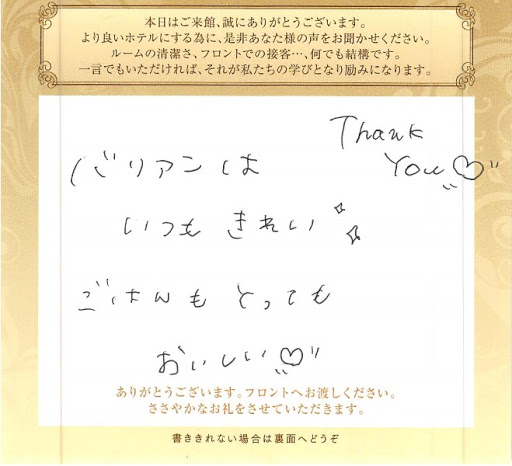 本日はご来館、誠にありがとうございます。
より良いホテルにする為に、是非あなた様の声をお聞かせください。
ルームの清潔さ、フロントでの接客…、何でも結構です。
一言でもいただければ、それが私たちの学びとなり励みになります。
Thank
You♡
バリアンは
いつもきれい
ごはんもとっても
おいしい♡
ありがとうございます。フロントへお渡しください。
ささやかなお礼をさせていただきます。
書ききれない場合は裏面へどうぞ